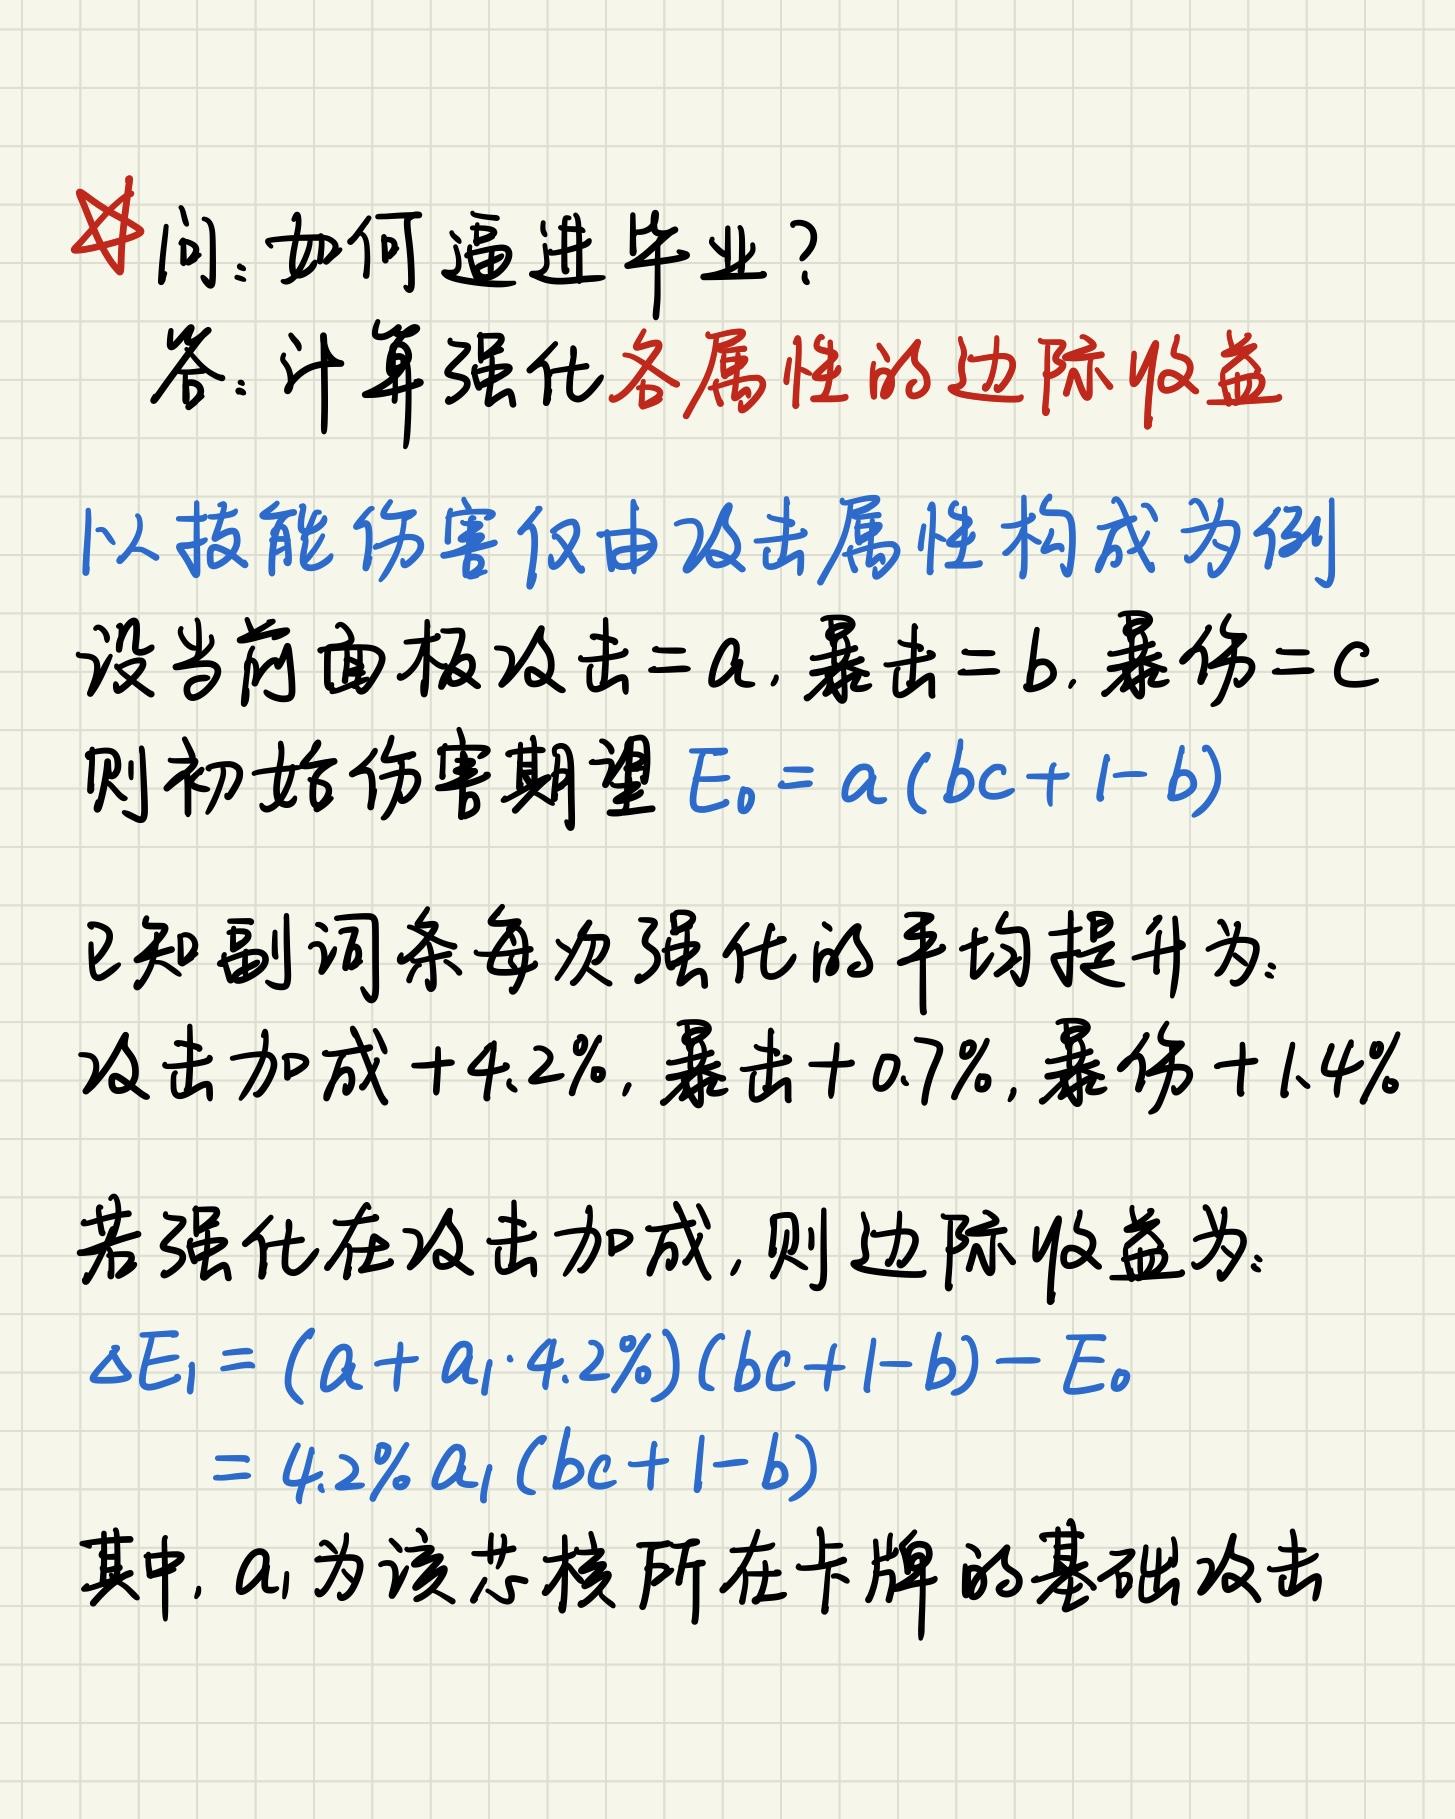 问:如何逼进毕业?
答:计算强化各属性的边际收益
以技能伤害仅由攻击属性构成为例
设当前面板攻击=a,暴击=b,暴伤=c
则初始伤害期望 E₀=a(bc+1-b)
已知副词条每次强化的平均提升为:
攻击加成+4.2%,暴击+0.7%,暴伤+1.4%
若强化在攻击加成,则边际收益为:
△E₁=(a+a₁·4.2%)(bc+1-b)-E₀
=4.2%a₁(bc+1-b)
其中,a₁为该芯核所在卡牌的基础攻击